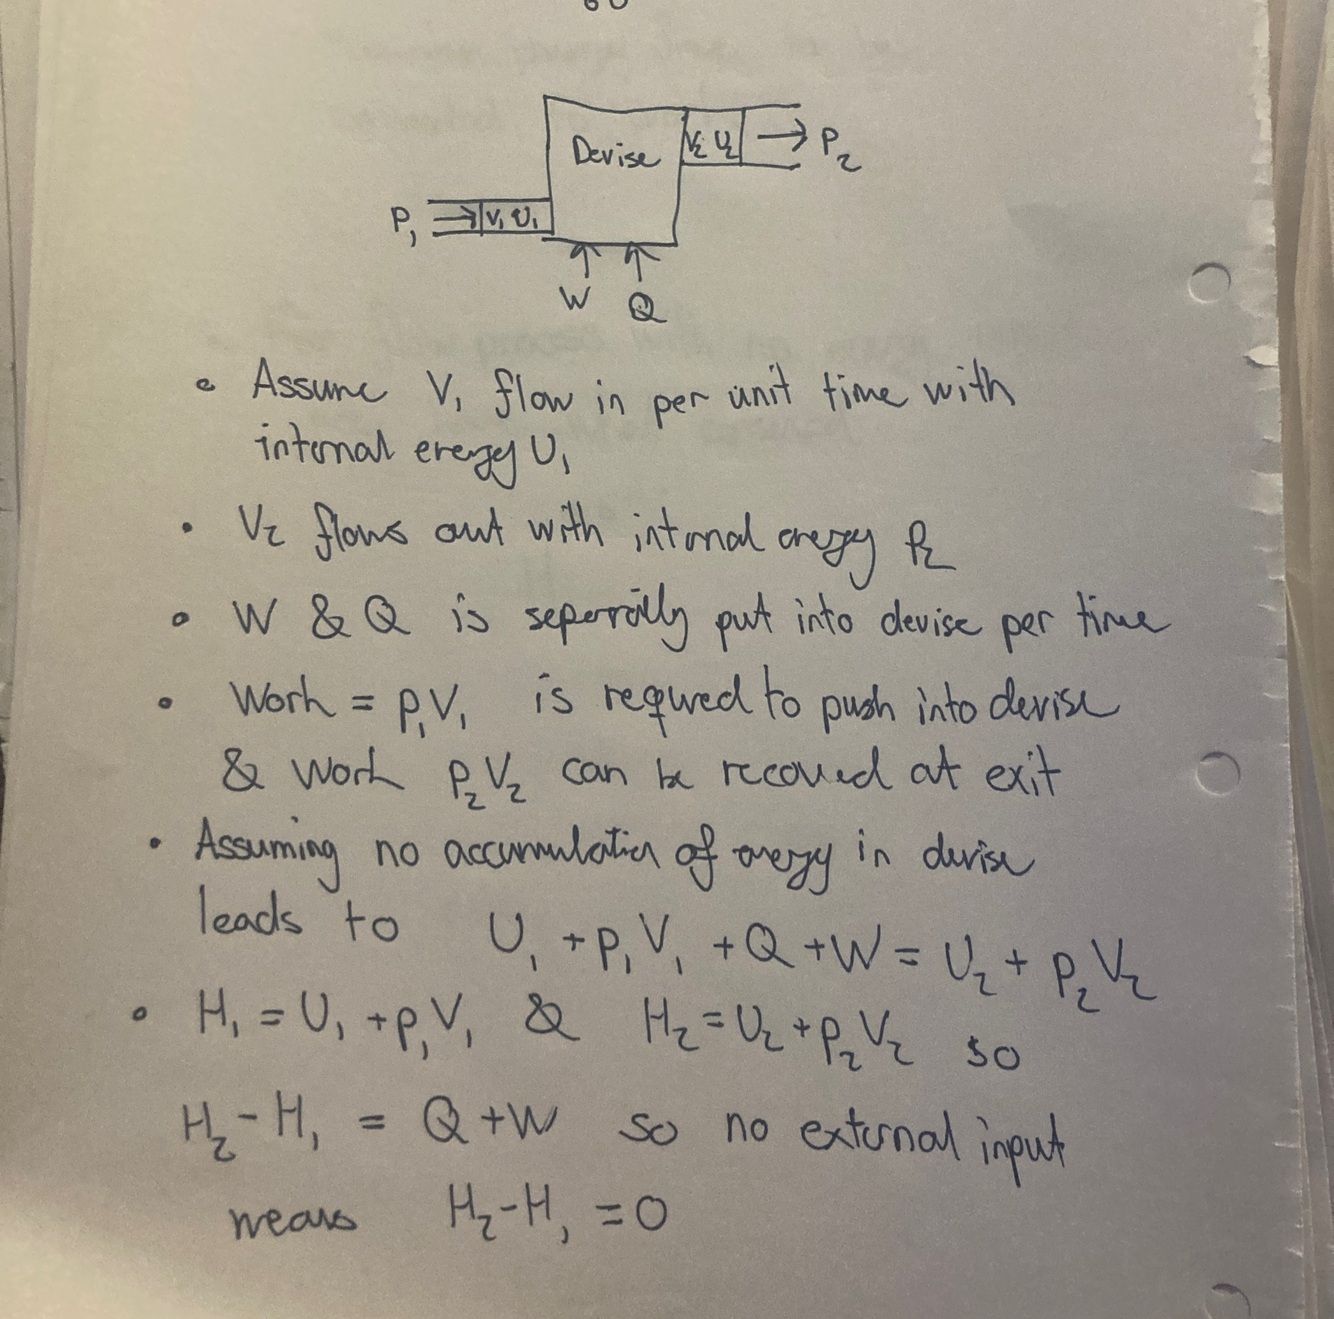 Devise
V₂ U₂ → P₂
P₁ → V₁ U₁
W Q
• Assume V₁ flow in per unit time with
internal energy U₁
• V₂ flows out with internal energy P₂
• W & Q is seperatly put into devise per time
• Work = p₁V₁ is required to push into devise
& Work p₂V₂ can be recovered at exit
• Assuming no accumulation of energy in devise
leads to U₁ + p₁V₁ + Q + W = U₂ + p₂V₂
• H₁ = U₁ + p₁V₁ & H₂ = U₂ + p₂V₂ so
H₂ - H₁ = Q + W so no external input
means H₂ - H₁ = 0